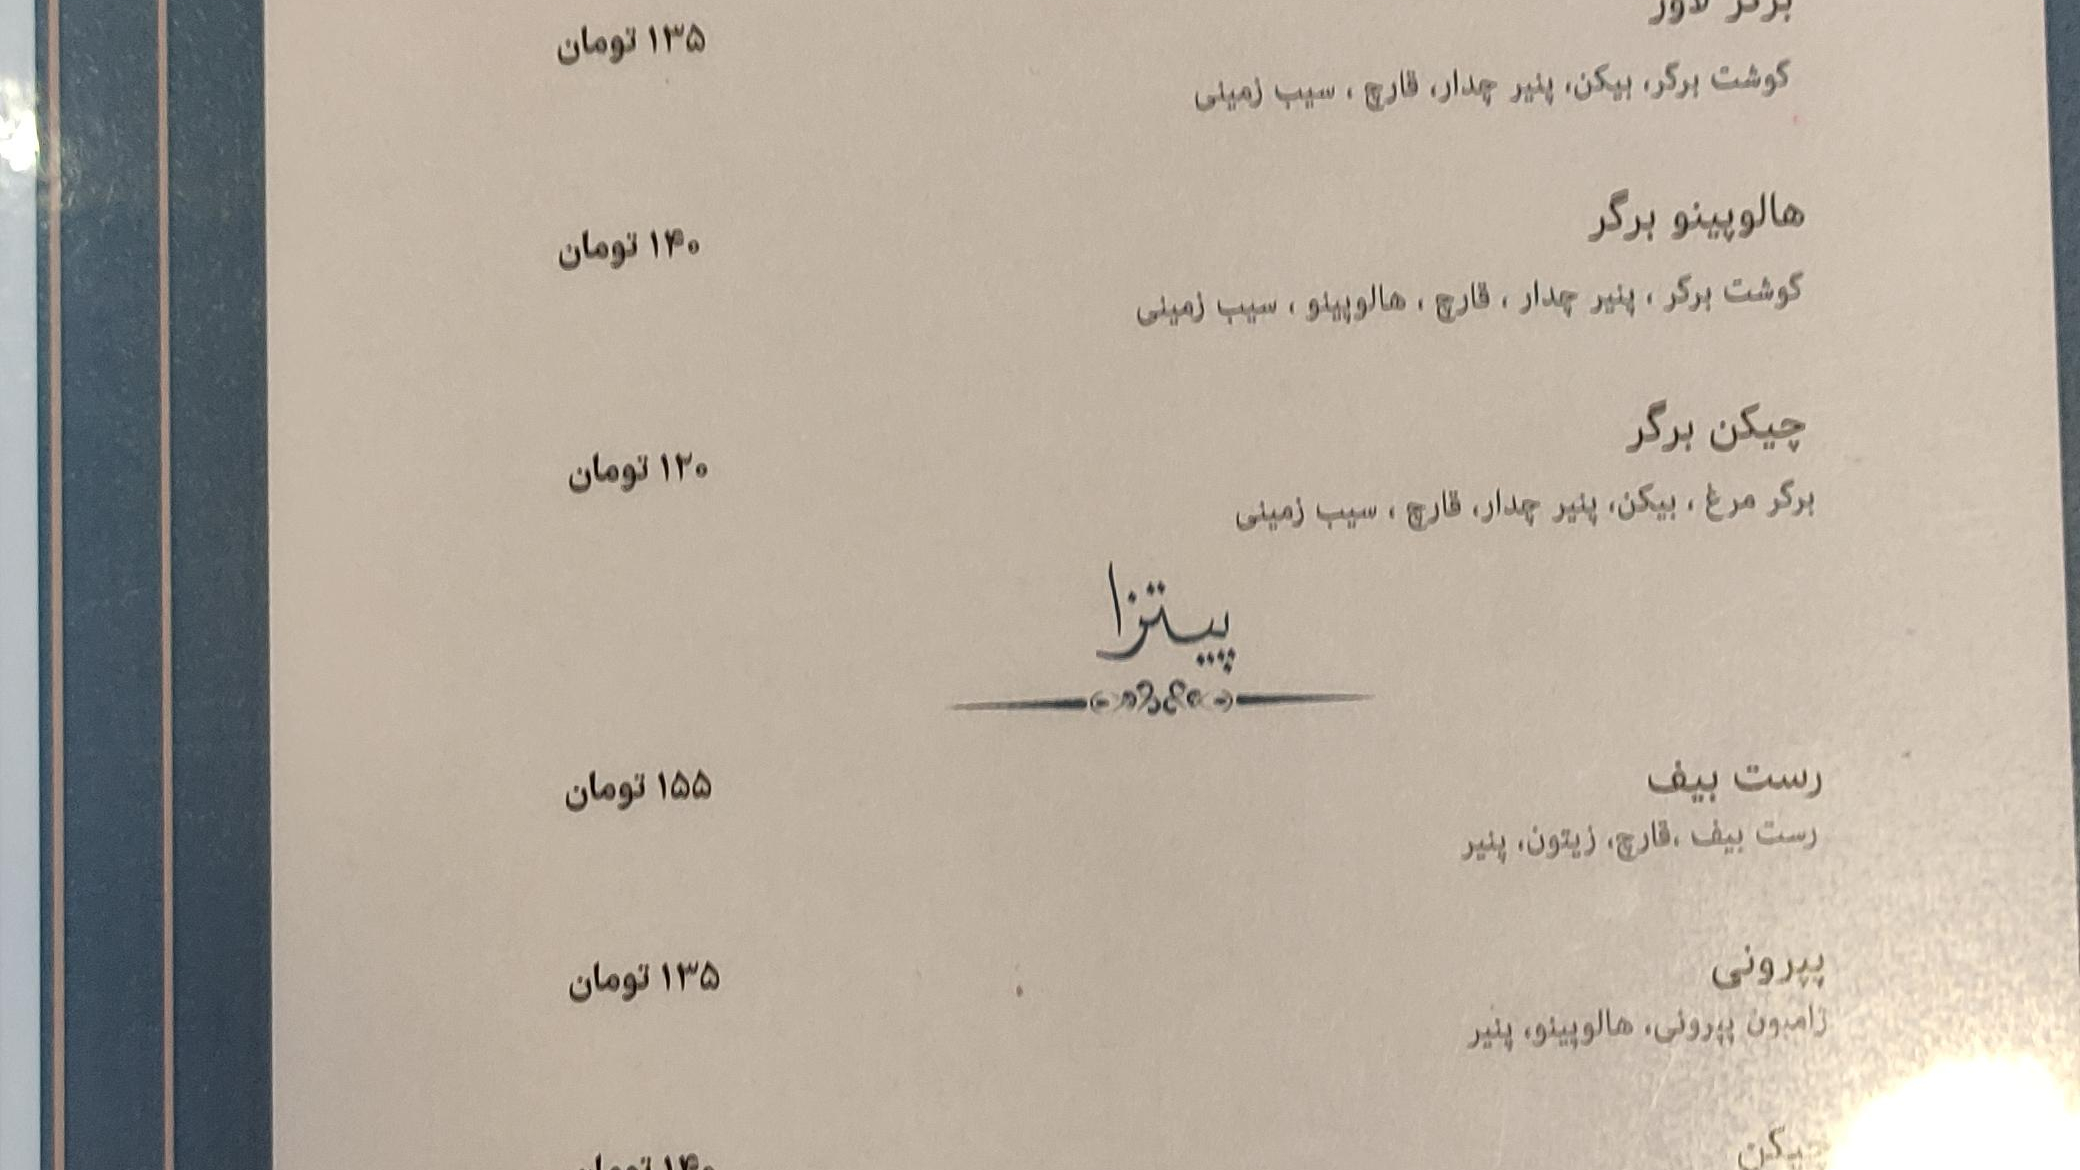 برگر لاور
۱۳۵ تومان
گوشت برگر، بیکن، پنیر چدار، قارچ ، سیب زمینی
هالوپینو برگر
۱۴۰ تومان
گوشت برگر ، پنیر چدار ، قارچ ، هالوپینو ، سیب زمینی
چیکن برگر
۱۲۰ تومان
برگر مرغ ، بیکن، پنیر چدار، قارچ ، سیب زمینی
پیتزا
رست بیف
۱۵۵ تومان
رست بیف ،قارچ، زیتون، پنیر
پپرونی
۱۳۵ تومان
ژامبون پپرونی، هالوپینو، پنیر
چیکن
۱۴۰ تومان